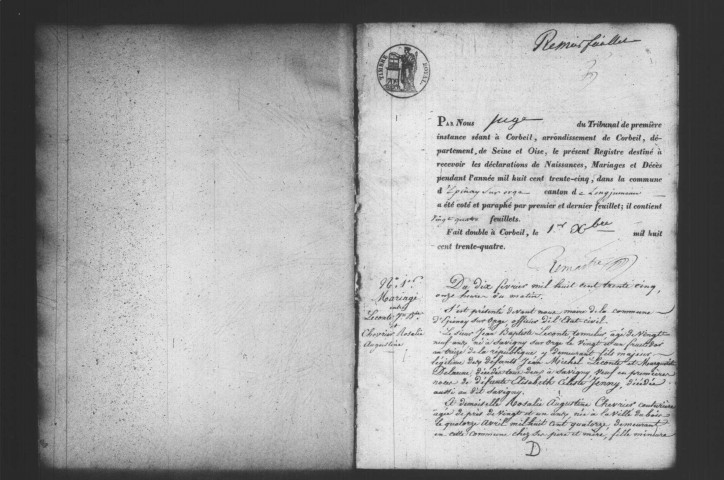 Premier feuillet
TIMBRE ROYAL
PAR NOUS juge du Tribunal de première
instance séant à Corbeil, arrondissement de Corbeil, dé-
partement, de Seine et Oise, le présent Registre destiné à
recevoir les déclarations de Naissances, Mariages et Décès
pendant l'année mil huit cent trente-cinq, dans la commune
d'Epinay sur orge canton de Longjumeau
a été coté et paraphé par premier et dernier feuillet; il contient
vingt quatre feuillets.
Fait double à Corbeil, le 1er Xbre mil huit
cent trente-quatre.
N° 1er
Mariage
entre
Leconte Jn Bte
et
Chevrier Rosalie
Augustine
Du dix février mil huit cent trente cinq,
onze heure du matin.
S'est présenté devant nous maire de la commune
d'Epinay sur Orge, officier de l'Etat civil.
Le Sieur Jean Baptiste Leconte, agé de vingt
neuf ans, né à Savigny sur orge le vingt
an treize de la république, y demeurant fils majeur
légitime des défunts Jean Michel Leconte et Marguerite
Delaune, décédés tous deux à Savigny veuf en premieres
noces de défunte Elisabeth Celeste Jenny, décédée
aussi au dit Savigny.
Et demoiselle Rosalie Augustine Chevrier couturière
agée de près de vingt et un ans, née à la Ville du bois
le quatorze Avril mil huit cent quatorze, demeurant
en cette commune chez ses père et mère, fille mineure
D